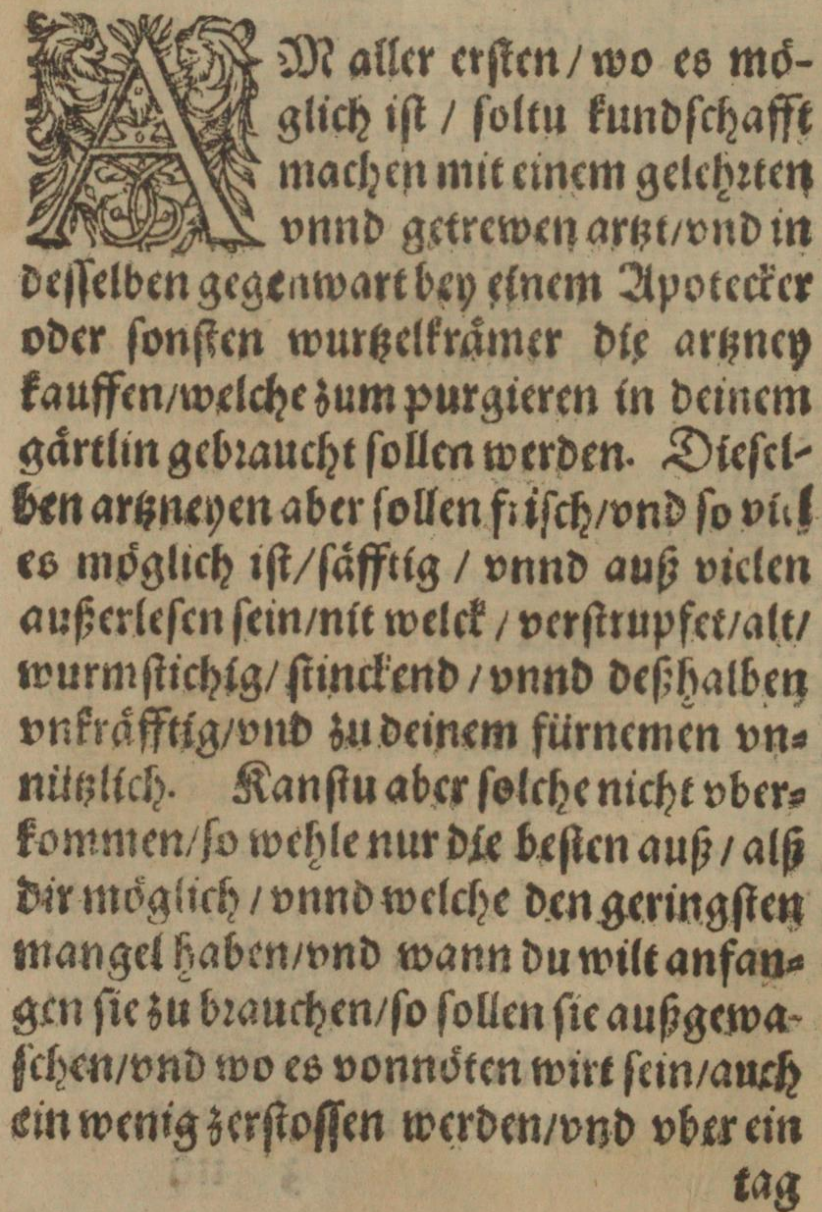 AM aller ersten/ wo es mö-
glich ist / soltu kundschafft
machen mit einem gelehrten
vnnd getrewen artzt/vnd in
desselben gegenwart bey einem Apotecker
oder sonsten wurtzelkrämer die artzney
kauffen/welche zum purgieren in deinem
gärtlin gebraucht sollen werden. Diesel-
ben artzneyen aber sollen frisch/vnd so viel
es möglich ist/säfftig / vnnd auß vielen
außerlesen sein/nit welck / verstrupfet/alt/
wurmstichig/ stinckend / vnnd deßhalben
vnkräfftig/vnd zu deinem fürnemen vn-
nützlich. Kanstu aber solche nicht vber-
kommen/so wehle nur die besten auß / alß
dir möglich / vnnd welche den geringsten
mangel haben/vnd wann du wilt anfan-
gen sie zu brauchen/so sollen sie außgewa-
schen/vnd wo es vonnöten wirt sein/auch
ein wenig zerstossen werden/vnd vber ein
tag